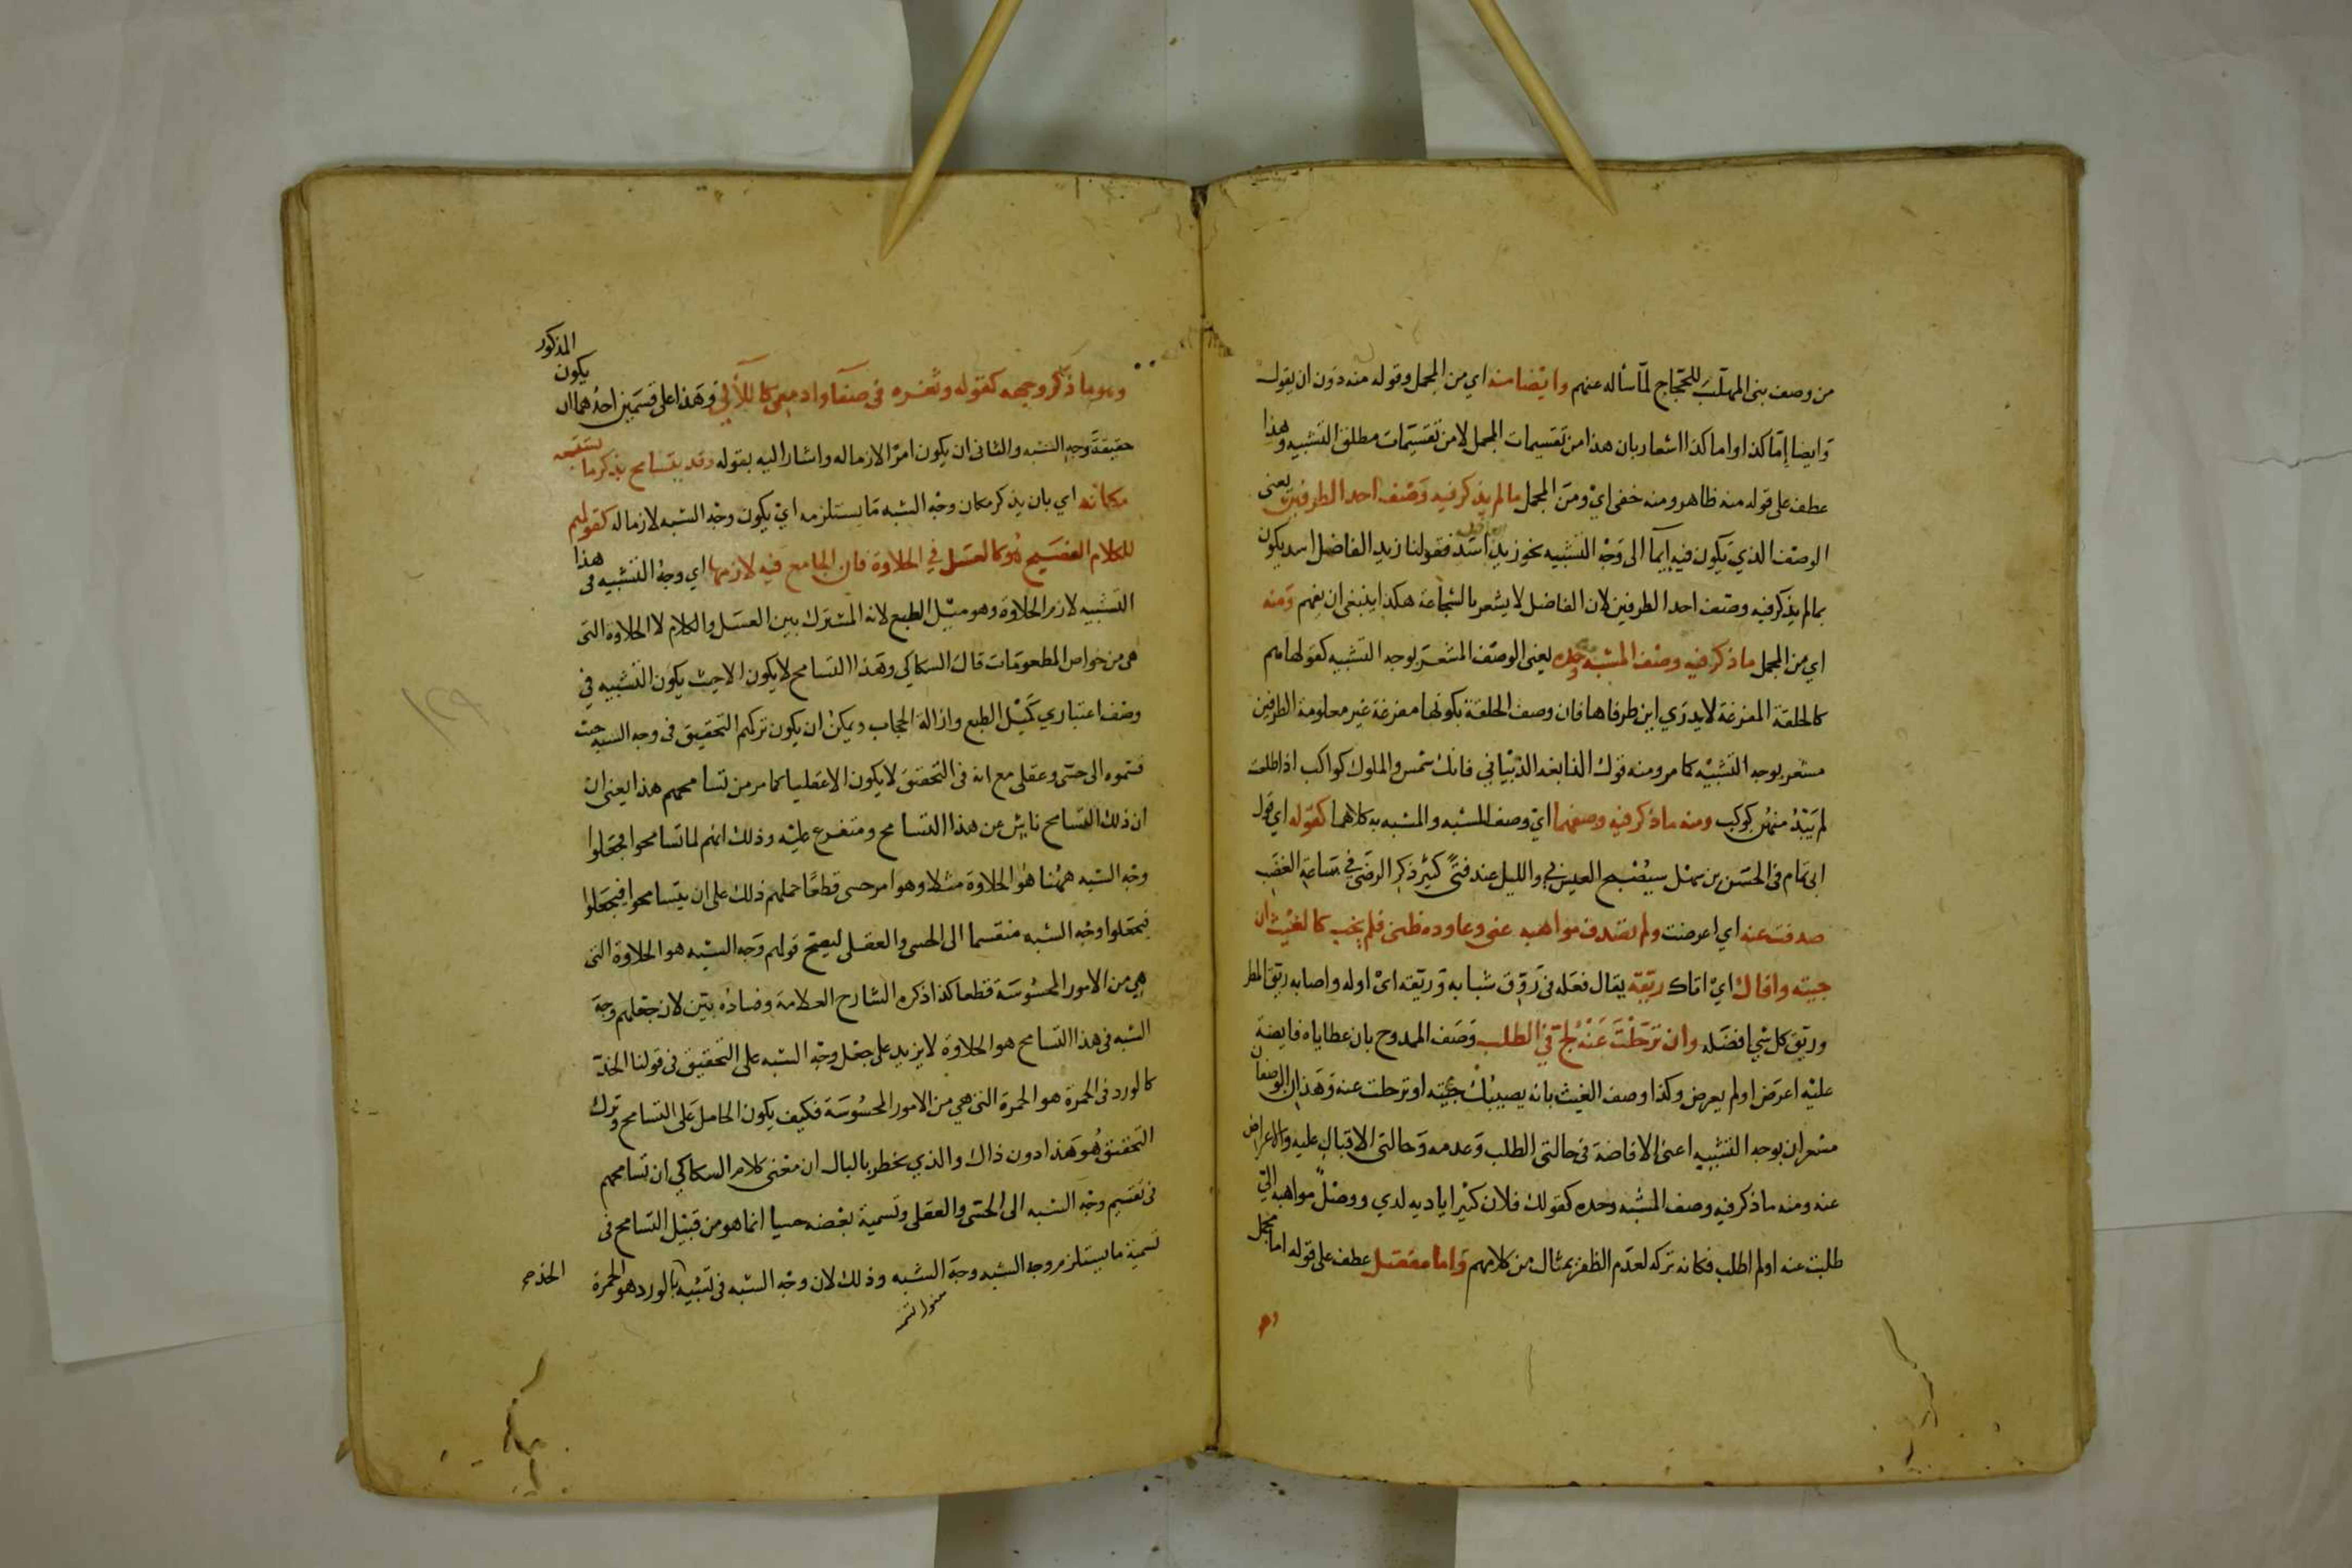 من وصف بنى المهلب للحجاج لمّا سأله عنهم وايضا منه اي من المجمل وقوله منه دون ان يقول
وايضا إمّا كذا واما كذا اشعار بان هذا من تقسيمات المجمل لا من تقسيمات مطلق التشبيه وهذا
عطف على قوله منه ظاهر ومنه خفى اي ومن المجمل ما لم يذكر فيه وصف احد الطرفين يعنى
الوصف الذي يكون فيه إيمآ الى وجه التشبيه نحو زيد اسد فقولنا زيد الفاضل اسد يكون
مما لم يذكر فيه وصف احد الطرفين لان الفاضل لا يشعر بالشجاعة هكذا ينبغى ان يفهم ومنه
اي من المجمل ما ذكر فيه وصف المشبه به وحده يعنى الوصف المشعر بوجه التشبيه كقولها هم
كالحلقة المفرغة لا يدري اين طرفاها فان وصف الحلقة بكونها مفرغة غير معلومة الطرفين
مشعر بوجه التشبيه كما مر ومنه قول النابغه الذبياني فانك شمس والملوك كواكب اذا طلعت
لم يَبْدُ منهن كوكب ومنه ما ذكر فيه وصفهما اي وصف المشبه والمشبه به كلاهما كقوله اي قول
ابى تمام فى الحسن بن سهل ستُصْبح العيس بي والليل عند فتًى كثير ذكر الرضى في ساعة الغضب
صدفت عنه اي اعرضت ولم تصدف مواهبه عنى وعاوده ظنى فلم يخب كالغيث ان
جيته وافاك اي اتاك ريقه يقال فعله فى رَوْق شبابه وريقه اى اوله واصابه ريق المطر
وريق كل شي افضله وان ترحلت عنه لجّ في الطلب وصف الممدوح بان عطاياه فايضة
عليه اعرض او لم يعرض وكذا وصف الغيث بانه يصيبك جيته او ترحلت عنه وهذان الوصفان
مشعران بوجه التشبيه اعنى الافاضة فى حالتى الطلب وعدمه وحالتى الاقبال عليه والاعراض
عنه ومنه ما ذكر فيه وصف المشبه وحده كقولك فلان كثير اياديه لدي ووصل مواهبه الىّ
طلبت عنه او لم اطلب فكانه تركه لعدم الظفر بمثال من كلامهم واما مفصل عطف على قوله اما مجمل
المذكور
وهو ما ذكر وجهه كقوله وثغره فى صفآ وادمعى كاللآلي وهذا على قسمين احدهما ان يكون
حقيقة وجه الشبه والثانى ان يكون امرًا لازما له واشار اليه بقوله وقد يتسامح بذكر ما يستتبعه
مكانه اي بان يذكر مكان وجه الشبه ما يستلزمه اي يكون وجه الشبه لازما له كقولهم
للكلام الفصيح هو كالعسل في الحلاوة فان الجامع فيه لازمها اي وجه التشبيه فى هذا
التشبيه لازم الحلاوة وهو ميل الطبع لانه المشترك بين العسل والكلام لا الحلاوة التى
هى من خواص المطعومات قال السكاكي وهذا التسامح لا يكون الا حيث يكون التشبيه في
وصف اعتباري كميل الطبع وازالة الحجاب ويمكن ان يكون تركهم التحقيق فى وجه الشبه حيث
قسموه الى حسّى وعقلى مع انه فى التحقيق لا يكون الا عقليا كما مر من تسامحهم هذا يعنى ان
ان ذلك التسامح ناش عن هذا التسامح ومتفرع عليه وذلك انهم لما تسامحوا فجعلوا
وجه الشبه ههنا هو الحلاوة مثلا وهو امر حسى قطعًا حملهم ذلك على ان يتسامحوا فيجعلوا
فيجعلوا وجه الشبه منقسما الى الحسى والعقلى ليصح قولهم وجه الشبه هو الحلاوة التى
هي من الامور المحسوسة قطعا كذا ذكره الشارح العلامة وفساده بيّن لان جعلهم وجه
الشبه فى هذا التسامح هو الحلاوة لا يزيد على جعل وجه الشبه على التحقيق فى قولنا الخدّ
كالورد فى الحمرة هو الحمرة التى هي من الامور المحسوسة فكيف يكون الحامل على التسامح وترك
التحقيق هو هذا دون ذاك والذي يخطر بالبال ان معنى كلام السكاكي ان تسامحهم
فى تقسيم وجه الشبه الى الحسّى والعقلى وتسمية بعضه حسيا انما هو من قبيل التسامح فى
تسمية ما يستلزم وجه الشبه وجه الشبه وذلك لان وجه الشبه فى تشبيه بالورد هو الحمرة
الخد صح
١٢٩